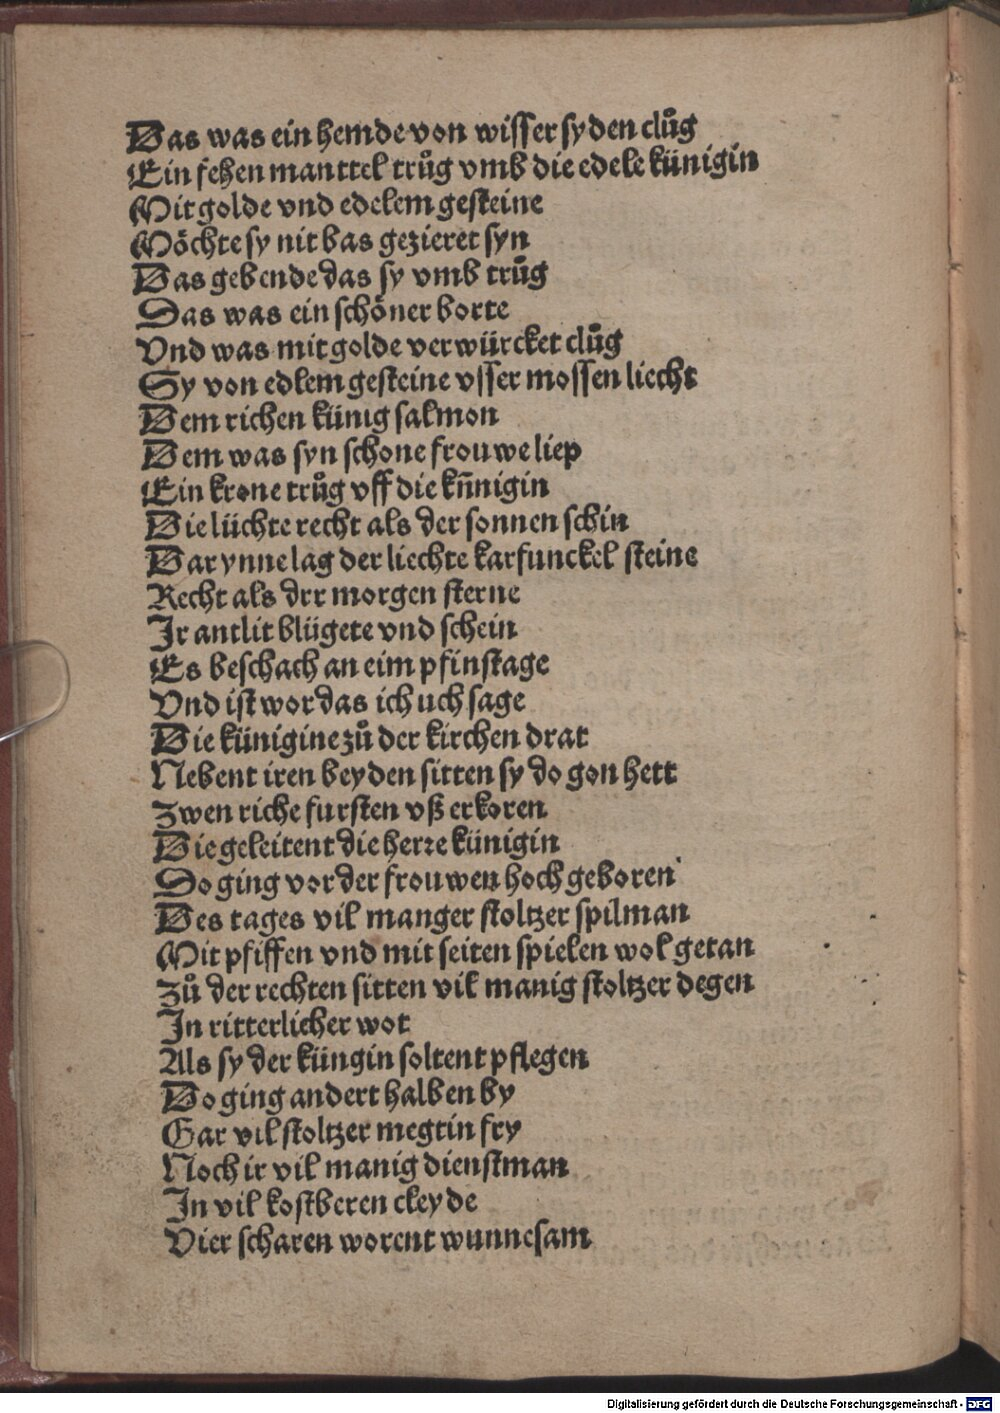 Das was ein hemde von wisser syden clůg
Ein fehen manttel trůg vmb die edele künigin
Mit golde vnd edelem gesteine
Möchte sy nit bas gezieret syn
Das gebende das sy vmb trůg
Das was ein schöner borte
Vnd was mit golde verwürcket clůg
Sy von edlem gesteine vsser mossen liecht
Dem richen künig salmon
Dem was syn schone frouwe liep
Ein krone trůg vff die kn̄nigin
Die lüchte recht als der sonnen schin
Dar ynne lag der liechte karfunckel steine
Recht als drr morgen sterne
Ir antlit blügete vnd schein
Es beschach an eim pfinstage
Vnd ist wor das ich uch sage
Die künigine zů der kirchen drat
Nebent iren beyden sitten sy do gon hett
Zwen riche fursten vß erkoren
Die geleitent die herre künigin
Do ging vor der frouwen hoch geboren
Des tages vil manger stoltzer spilman
Mit pfiffen vnd mit seiten spielen wol getan
Zů der rechten sitten vil manig stoltzer degen
In ritterlicher wot
Als sy der küngin soltent pflegen
Do ging andert halben by
Gar vil stoltzer megtin fry
Noch ir vil manig dienstman
In vil kostberen cleyde
Vier scharen worent wunnesam
Digitalisierung gefördert durch die Deutsche Forschungsgemeinschaft - DFG